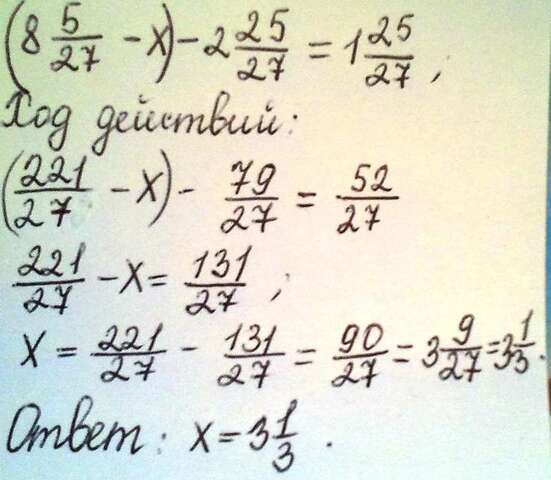 (8 5/27 - x) - 2 25/27 = 1 25/27;
Ход действий:
(221/27 - x) - 79/27 = 52/27
221/27 - x = 131/27;
x = 221/27 - 131/27 = 90/27 = 3 9/27 = 3 1/3.
Ответ: x = 3 1/3.